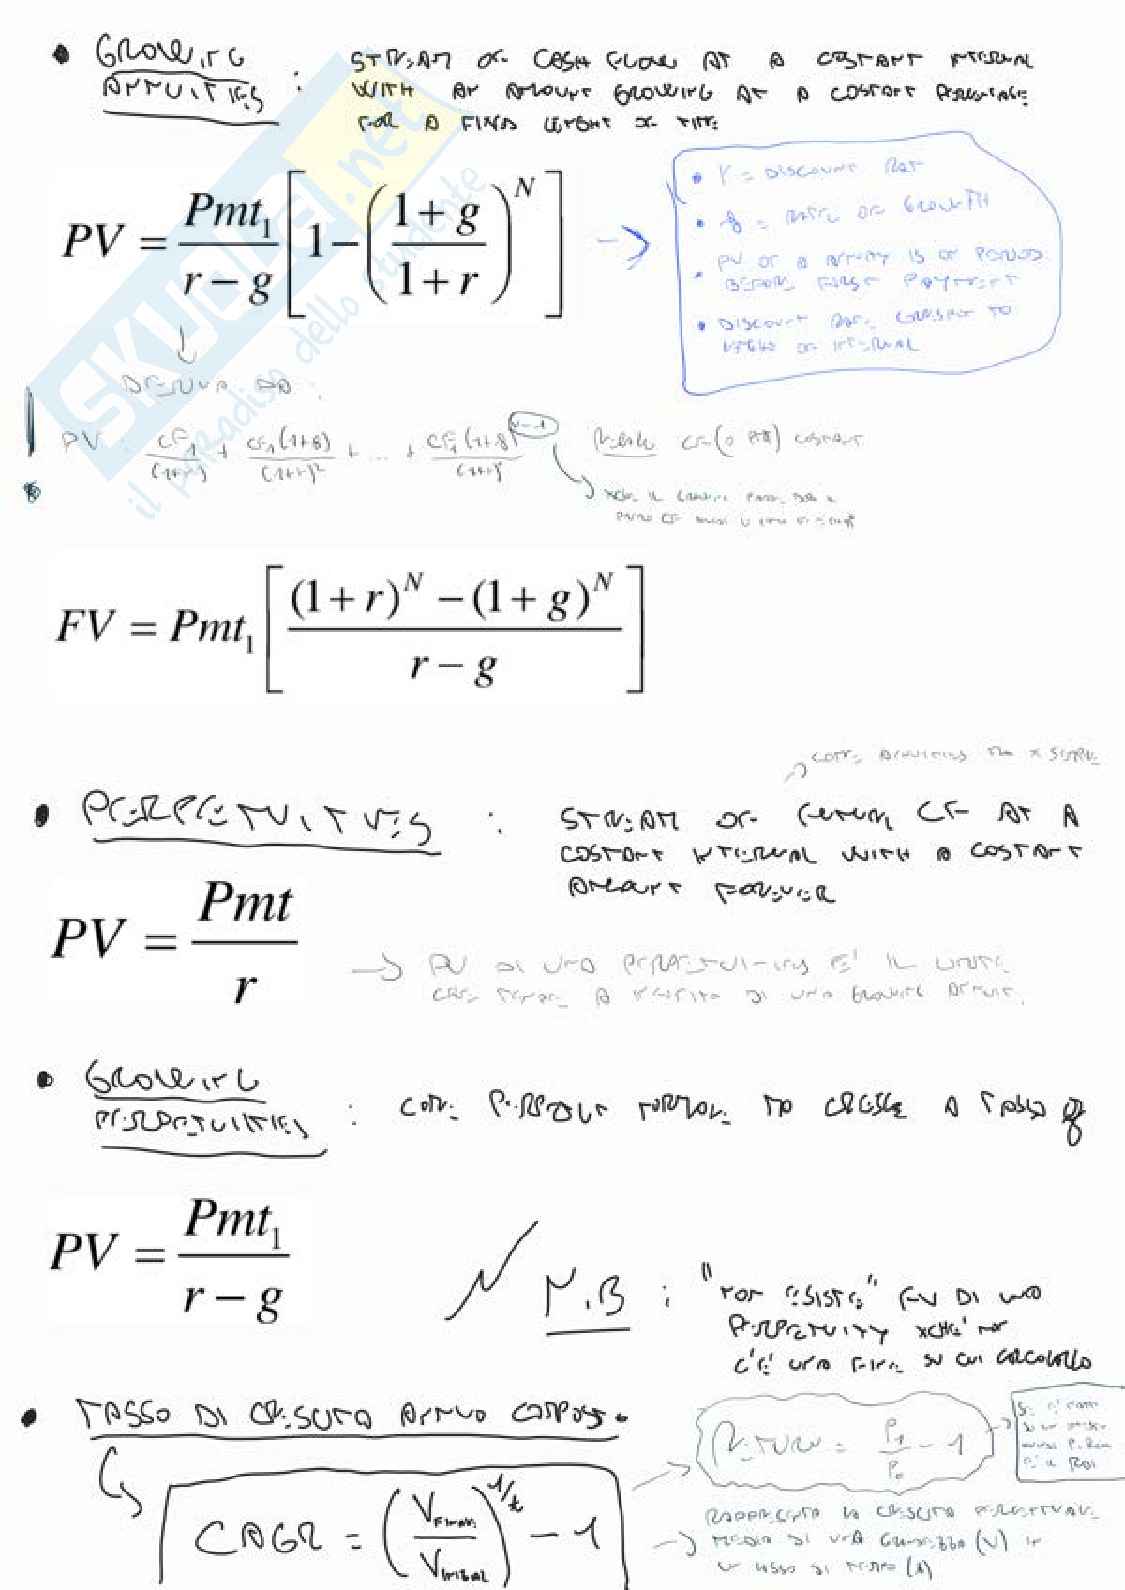 • GROWING ANNUITIES : STREAM OF CASH FLOW AT A COSTANT INTERVAL
WITH AN AMOUNT GROWING AT A COSTANT PERCENTAGE
FOR A FIXED LENGHT OF TIME
PV = Pmt₁ / (r − g) [ 1 − ( (1 + g) / (1 + r) )^N ] →
• r = DISCOUNT RATE
• g = RATE OF GROWTH
• PV OF A ANNUITY IS OF PERIODS
BEFORE FIRST PAYMENT
• DISCOUNT RATE CONSIST TO
LENGHT OF INTERVAL
DERIVA DA :
PV : CF₁ / (1+r) + CF₁(1+g) / (1+r)² + ... + CF₁(1+g)^(N-1) / (1+r)^N
CF COSTANT
FV = Pmt₁ [ ( (1 + r)^N − (1 + g)^N ) / (r − g) ]
COME ANNUITIES MA X SEMPRE
• PERPETUITIES : STREAM OF FUTURE CF AT A
COSTANT INTERVAL WITH A COSTANT
AMOUNT FOREVER
PV = Pmt / r
→ PV DI UNA PERPETUITIES E' IL LIMITE
CHE TENDE A INFINITO DI UNA GROWING ANNUIT.
• GROWING PERPETUITIES : COME PERPETUITY NORMALE MA CRESCE A TASSO g
PV = Pmt₁ / (r − g)
N.B : "NON ESISTE" FV DI UNA
PERPETUITY XCHE' NON
C'E' UNA FINE SU CUI CALCOLARLO
• TASSO DI CRESCITA ANNUO COMPOSTO
CAGR = ( V FINAL / V INITIAL )^(1/t) − 1
RETURN = P₁ / P₀ − 1
ROI
→ RAPPRESENTA LA CRESCITA PERCENTUALE
MEDIA DI UNA GRANDEZZA (V) IN
UN LASSO DI TEMPO (t)
SKUOLA.net
il paradiso dello studente